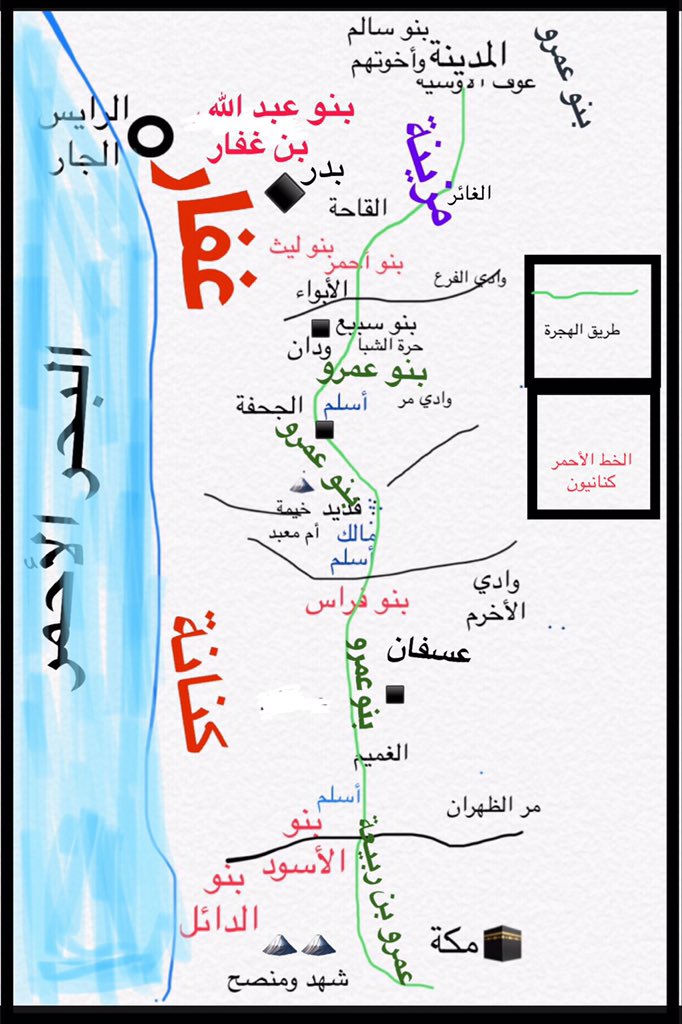 بنو سالم
المدينة وأخوتهم
عوف الاوسية
بنو عمرو
الرايس
الجار
بنو عبد الله
بن غفار
غفار
بدر
مزينة
الغائر
القاحة
بنو ليث
بنو أحمر
وادي الفرع
الأبواء
بنو سبيع
ودان
حرة الشبا
بنو عمرو
وادي مر
أسلم
الجحفة
بنو عمرو
قديد
خيمة
أم معبد
مالك
أسلم
وادي
الأخرم
بنو فراس
عسفان
بنو عمرو
كنانة
الغميم
أسلم
مر الظهران
بنو
الأسود
بنو
الدائل
عمرو بن ربيعة
مكة
شهد ومنصح
البحر الأحمر
طريق الهجرة
الخط الأحمر
كنانيون